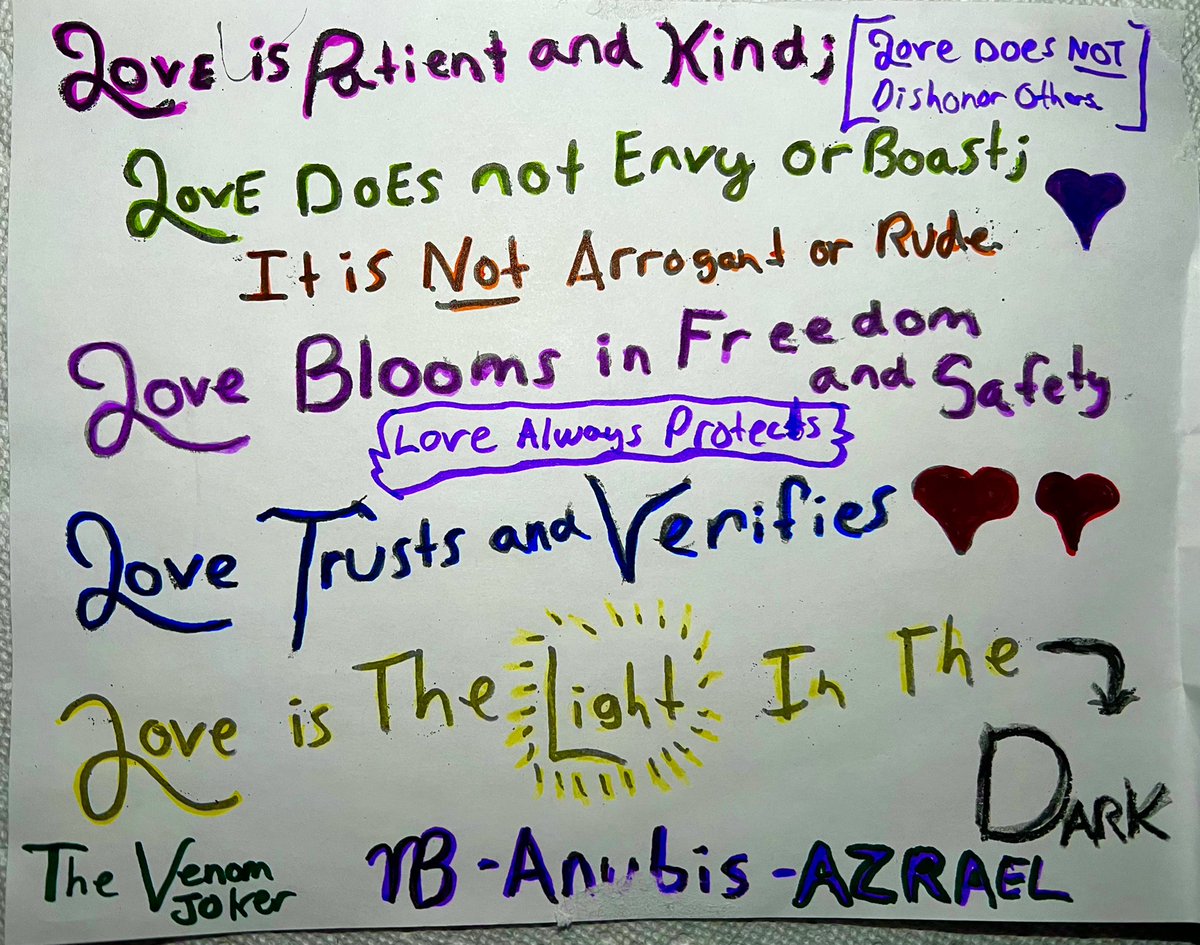 Love is Patient and Kind;
[Love Does NOT
Dishonor Others.]
LovE DoEs not Envy or Boast;
It is Not Arrogant or Rude.
Love Blooms in Freedom
and Safety
{Love Always Protects}
Love Trusts and Verifies
Love is The Light In The
DARK
The Venom
Joker
NB-Anubis-AZRAEL